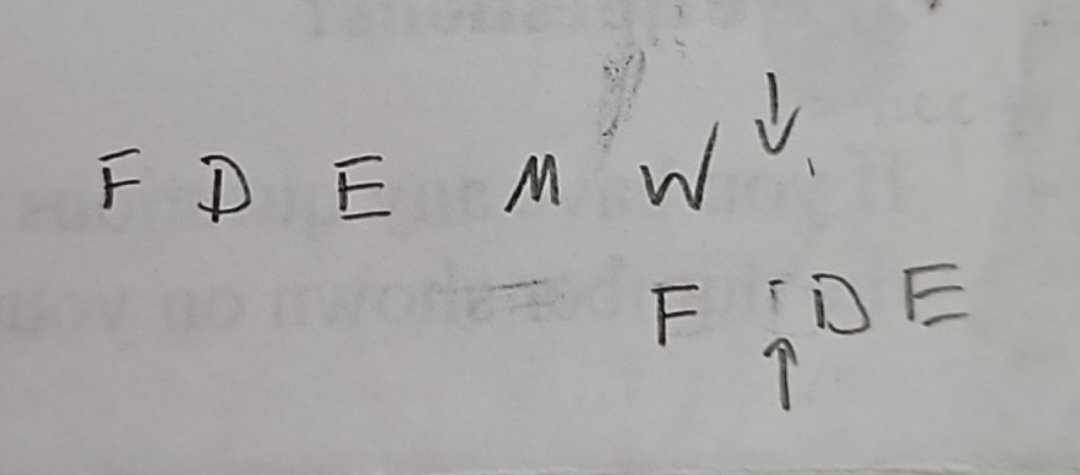 F D E M W ↓
= F ↑ D E